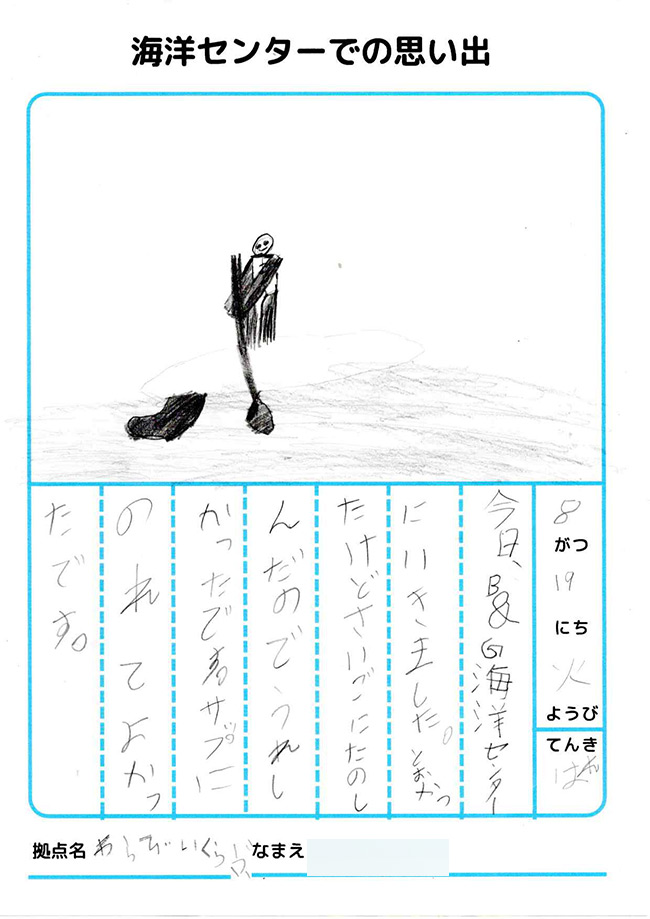 海洋センターでの思い出
8がつ19にち火ようび
てんきはれ
今日、B&G海洋センター
にいきました。とおかっ
たけどさいごにたのし
んだのでうれし
かったです。サップに
のれてよかっ
たです。
拠点名
なまえ